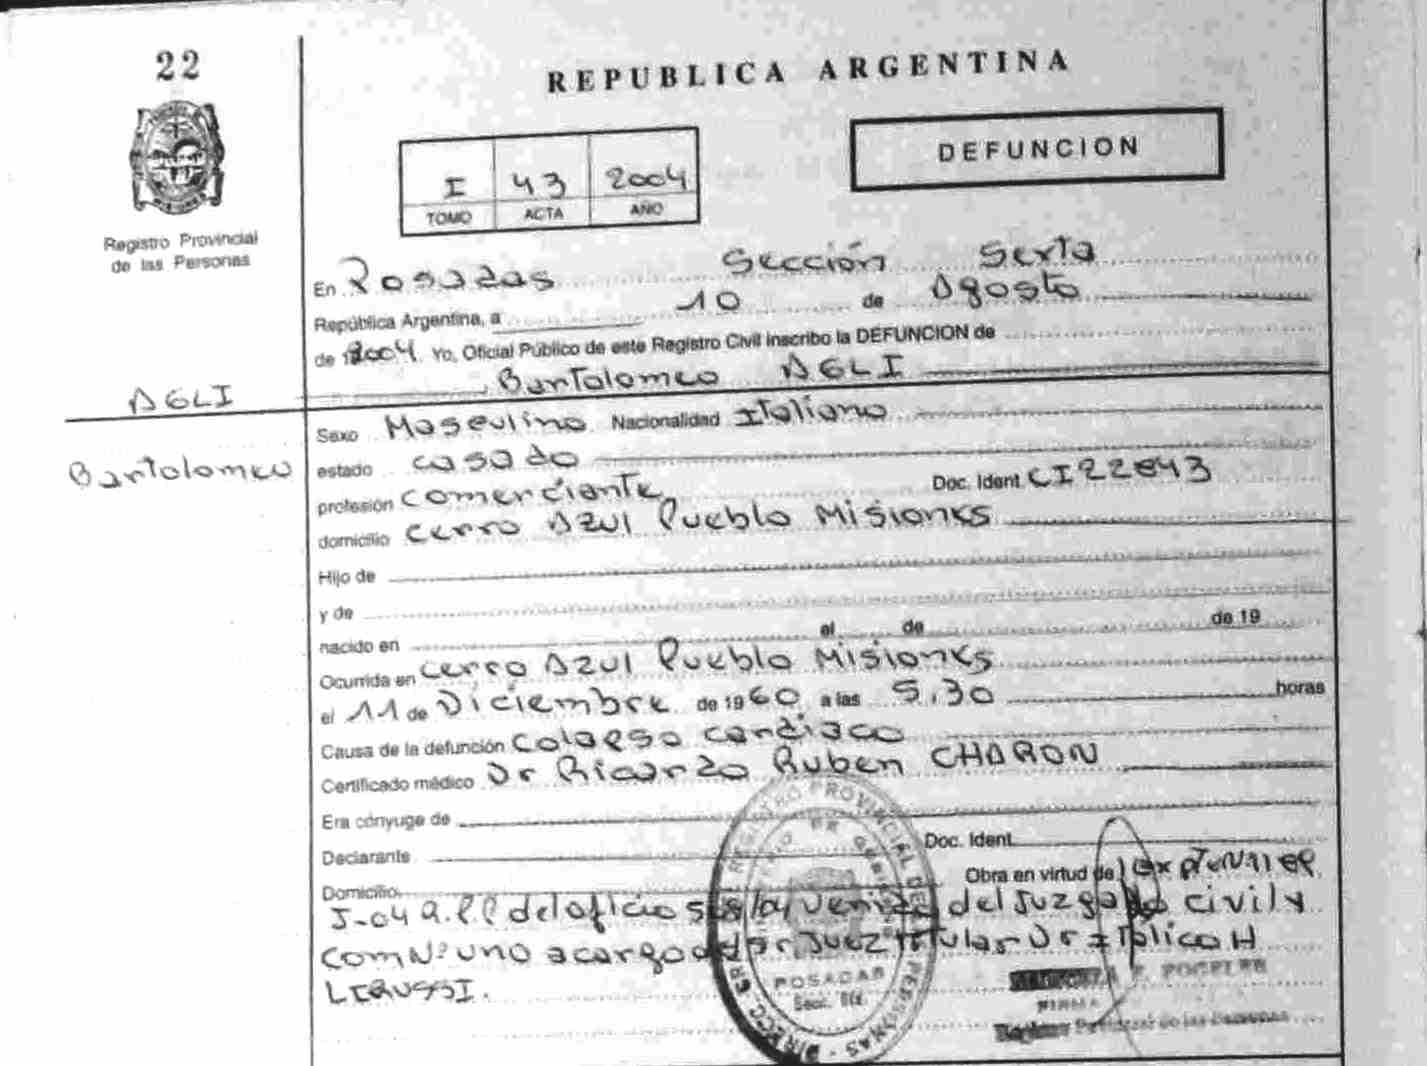 22
REPUBLICA ARGENTINA
DEFUNCION
I 43 2004
TOMO ACTA AÑO
Registro Provincial
de las Personas
En Posadas Sección Sexta
República Argentina, a 10 de Agosto
de 2004 Yo, Oficial Público de este Registro Civil inscribo la DEFUNCION de
Bartolomeo AGLI
AGLI
Bartolomeo
Sexo Masculino Nacionalidad Italiano
estado casado
profesión comerciante Doc. Ident. CI 22843
domicilio cerro Azul Pueblo Misiones
Hijo de
y de
nacido en el de de 19
Ocurrida en cerro Azul Pueblo Misiones
el 11 de Diciembre de 1960 a las 5.30 horas
Causa de la defunción colapso cardiaco
Certificado médico Dr Ricardo Ruben CHARON
Era cónyuge de
Declarante Doc. Ident.
Domicilio Obra en virtud de
J-04 del oficio del Juzgado civil y
com Nº uno a cargo del Sr Juez titular Dr Italico H
REGISTRO PROVINCIAL DE PERSONAS
POSADAS
Secc. 6ta
FIRMA
Provincial de las Personas